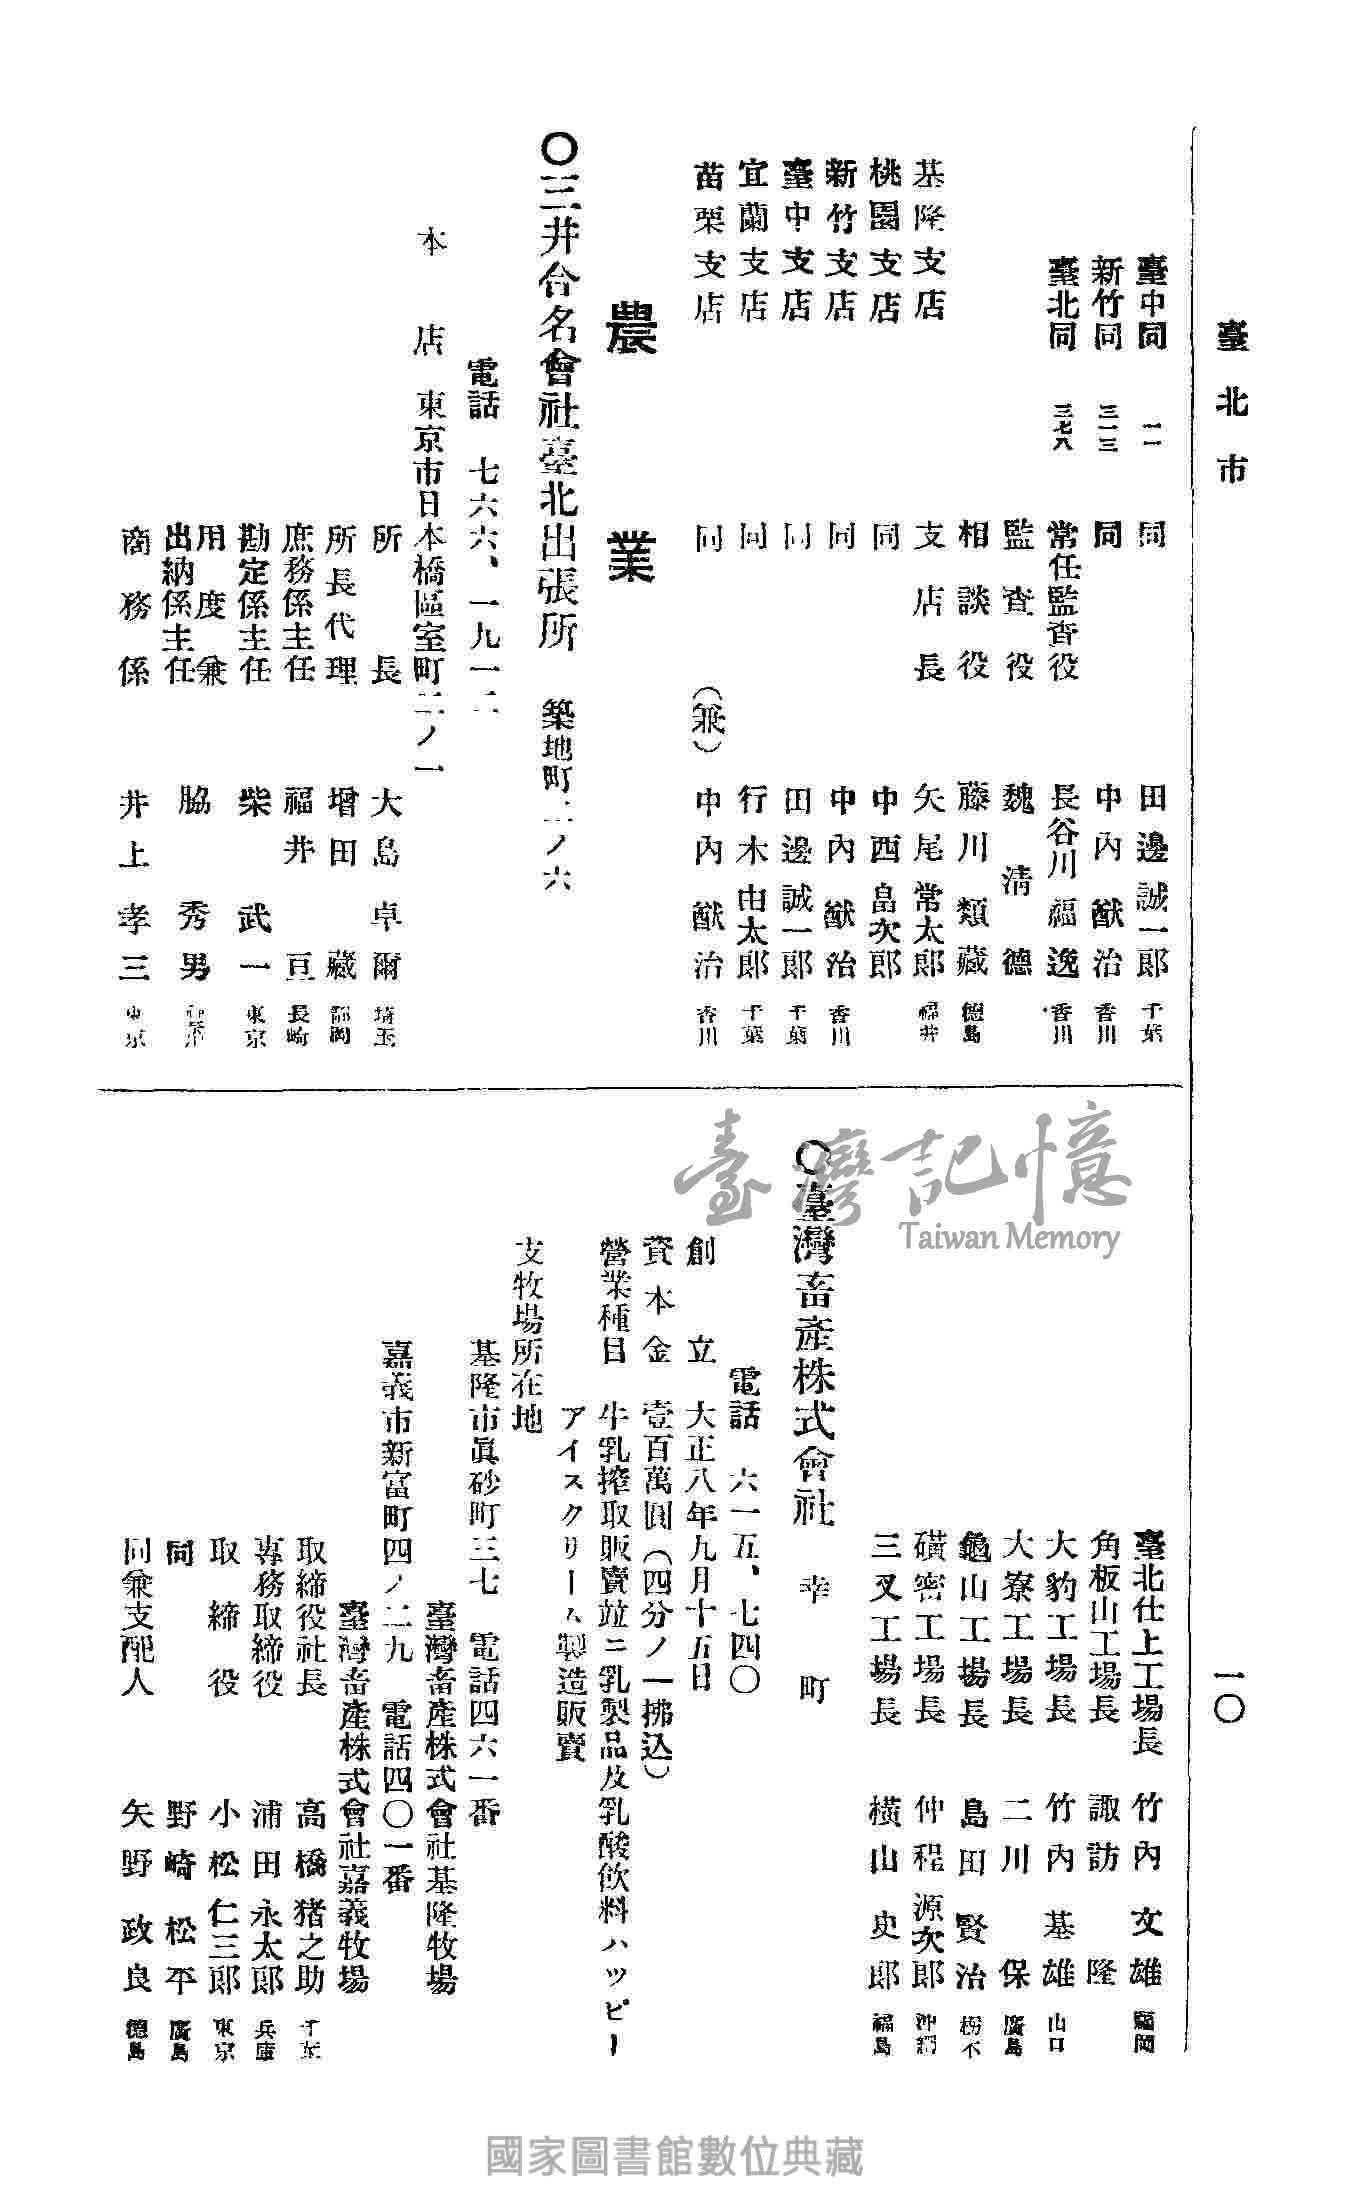 臺北市
一〇
臺中同 一一 同 田邊誠一郎 千葉
新竹同 三一三 同 中內猷治 香川
臺北同 三七八 常任監査役 長谷川福逸 香川
監査役 魏清德
相談役 藤川類藏 德島
基隆支店 支店長 矢尾常太郎 福井
桃園支店 同 中西畠次郎
新竹支店 同 中內猷治 香川
臺中支店 同 田邊誠一郎 千葉
宜蘭支店 同 行木由太郎 千葉
苗栗支店 同 (兼) 中內猷治 香川
農業
〇三井合名會社臺北出張所 築地町二ノ六
電話 七六六、一九一二
本店 東京市日本橋區室町二ノ一
所長 大島卓爾 埼玉
所長代理 增田藏 靜岡
庶務係主任 福井亘 長崎
勘定係主任 柴武一 東京
用度兼
出納係主任 脇秀男
商務係 井上孝三 東京
臺北仕上工場長 竹內文雄 福岡
角板山工場長 諏訪隆
大豹工場長 竹內基雄 山口
大寮工場長 二川保 廣島
龜山工場長 島田賢治 栃木
磺窑工場長 仲程源次郎 沖繩
三叉工場長 橫山史郎 福島
〇臺灣畜產株式會社 幸町
電話 六一五、七四〇
創立 大正八年九月十五日
資本金 壹百萬圓(四分ノ一拂込)
營業種目 牛乳搾取販賣竝ニ乳製品及乳酸飲料ハッピー
アイスクリーム製造販賣
支牧場所在地
基隆市眞砂町三七 電話四六一番
臺灣畜產株式會社基隆牧場
嘉義市新富町四ノ二九 電話四〇一番
臺灣畜產株式會社嘉義牧場
取締役社長 高橋猪之助 千葉
專務取締役 浦田永太郎 兵庫
取締役 小松仁三郎 東京
同 野崎松平 廣島
同兼支配人 矢野政良 德島
臺灣記憶
Taiwan Memory
國家圖書館數位典藏